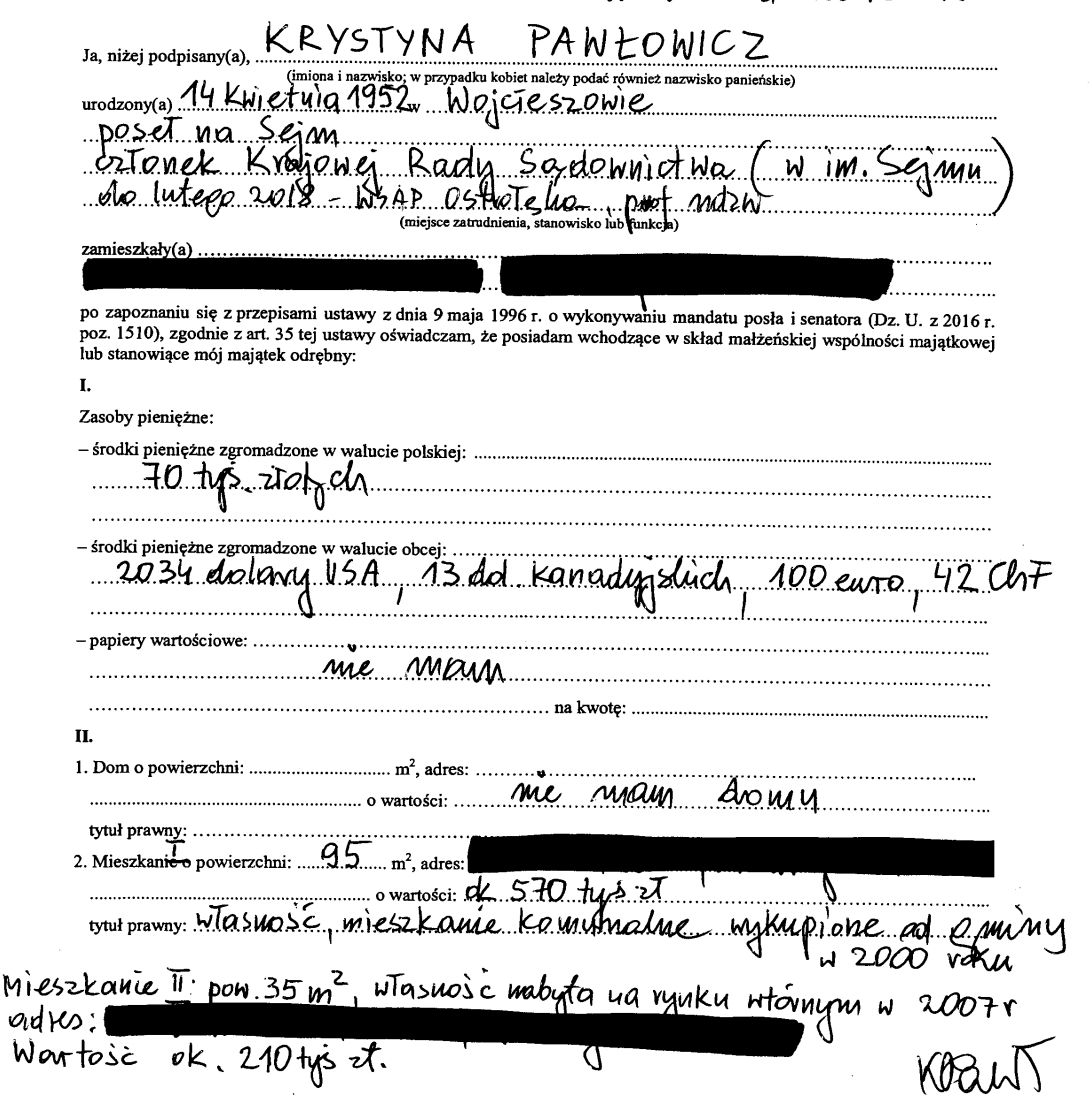 Ja, niżej podpisany(a), KRYSTYNA PAWŁOWICZ
(imiona i nazwisko; w przypadku kobiet należy podać również nazwisko panieńskie)
urodzony(a) 14 kwietnia 1952 w Wojcieszowie
poseł na Sejm
członek Krajowej Rady Sądownictwa (w im. Sejmu)
do lutego 2018 - WSAP Ostrołęka, prof ndzw
(miejsce zatrudnienia, stanowisko lub funkcja)
zamieszkały(a)
po zapoznaniu się z przepisami ustawy z dnia 9 maja 1996 r. o wykonywaniu mandatu posła i senatora (Dz. U. z 2016 r.
poz. 1510), zgodnie z art. 35 tej ustawy oświadczam, że posiadam wchodzące w skład małżeńskiej wspólności majątkowej
lub stanowiące mój majątek odrębny:
I.
Zasoby pieniężne:
– środki pieniężne zgromadzone w walucie polskiej:
70 tyś. złotych
– środki pieniężne zgromadzone w walucie obcej:
2034 dolary USA, 13 dol kanadyjskich, 100 euro, 42 ChF
– papiery wartościowe:
nie mam
na kwotę:
II.
1. Dom o powierzchni: m², adres:
o wartości: nie mam domu
tytuł prawny:
2. Mieszkanie o I powierzchni: 95 m², adres:
o wartości: ok 570 tyś zł
tytuł prawny: własność, mieszkanie komunalne wykupione od gminy
w 2000 roku
Mieszkanie II: pow. 35 m², własność nabyta na rynku wtórnym w 2007 r
adres:
Wartość ok. 210 tyś zł.